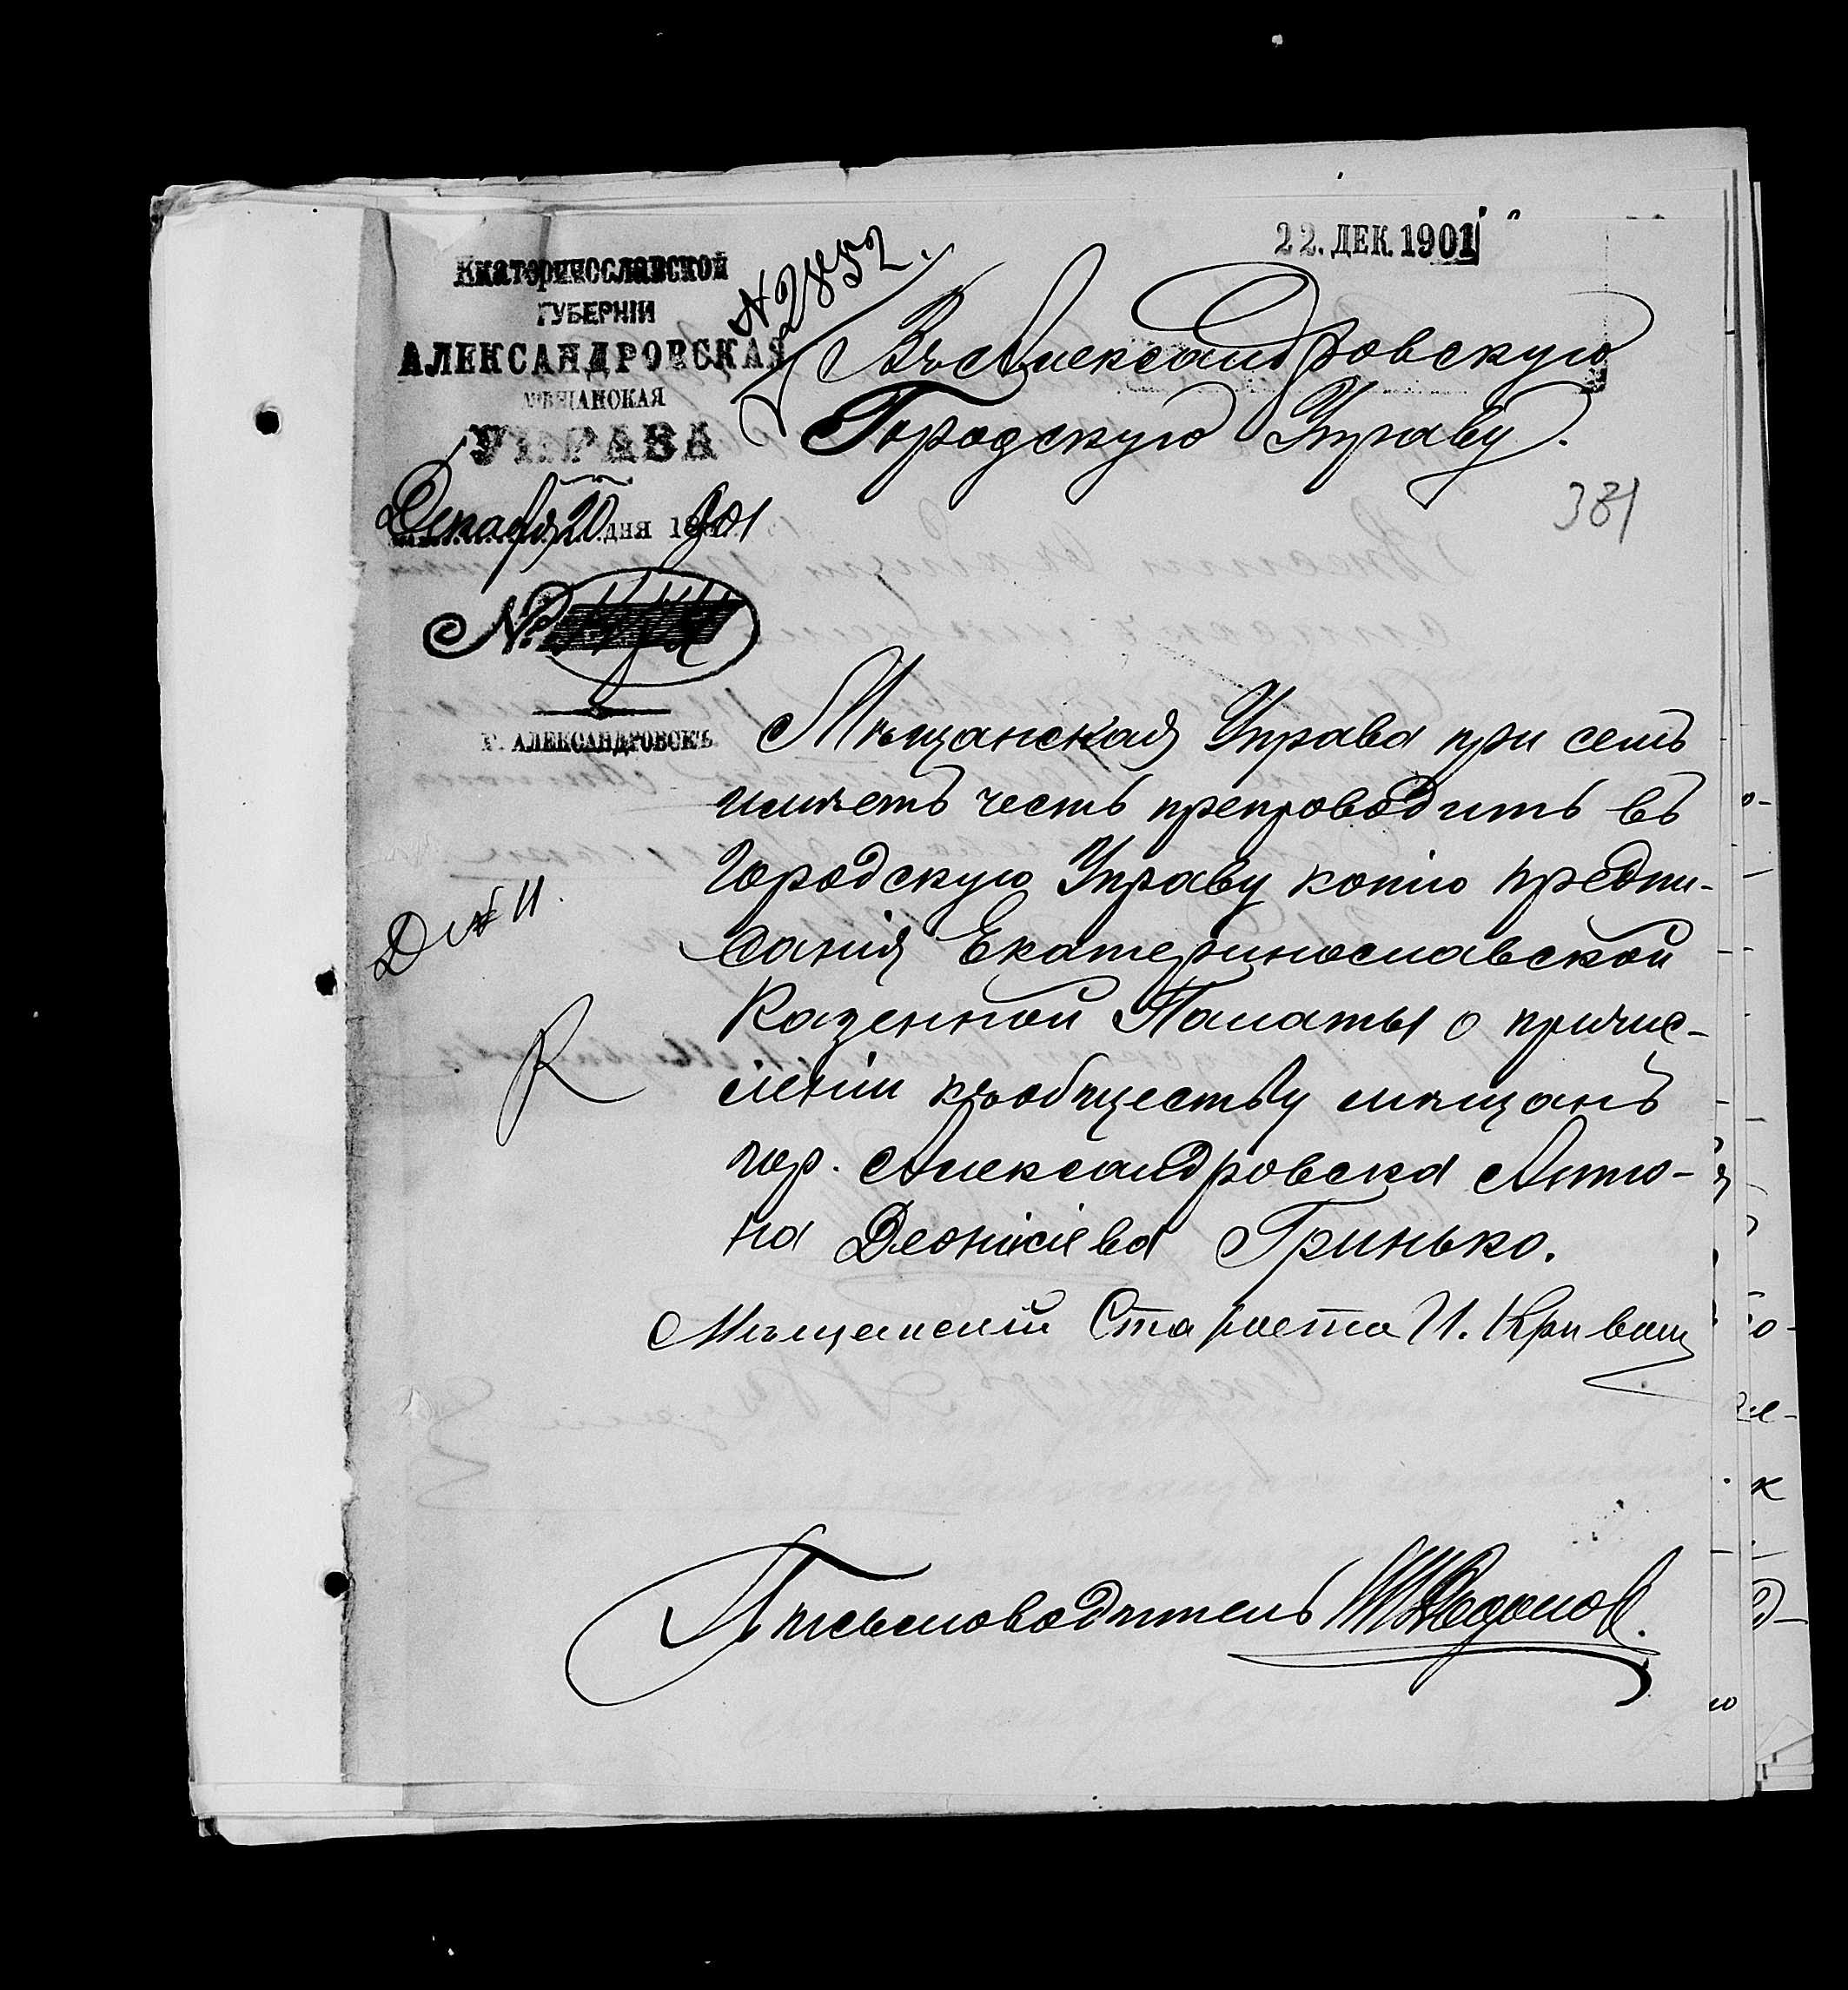 22. ДЕК. 1901
Екатеринославской
ГУБЕРНІИ
АЛЕКСАНДРОВСКАЯ
МѢЩАНСКАЯ
УПРАВА
Декабря 20 дня 1901
№
Г. АЛЕКСАНДРОВСКЪ.
N 2852.
Въ Александровскую
Городскую Управу.
381
Мѣщанская Управа при семъ
имѣетъ честь препроводить въ
Городскую Управу копію предпи-
санія Екатеринославской
Казенной Палаты о причис-
леніи къ обществу мѣщанъ
гор. Александровска Анто-
на Деонисіева Гринько.
Д № 11.
Мѣщанскій Староста И.
Письмоводитель